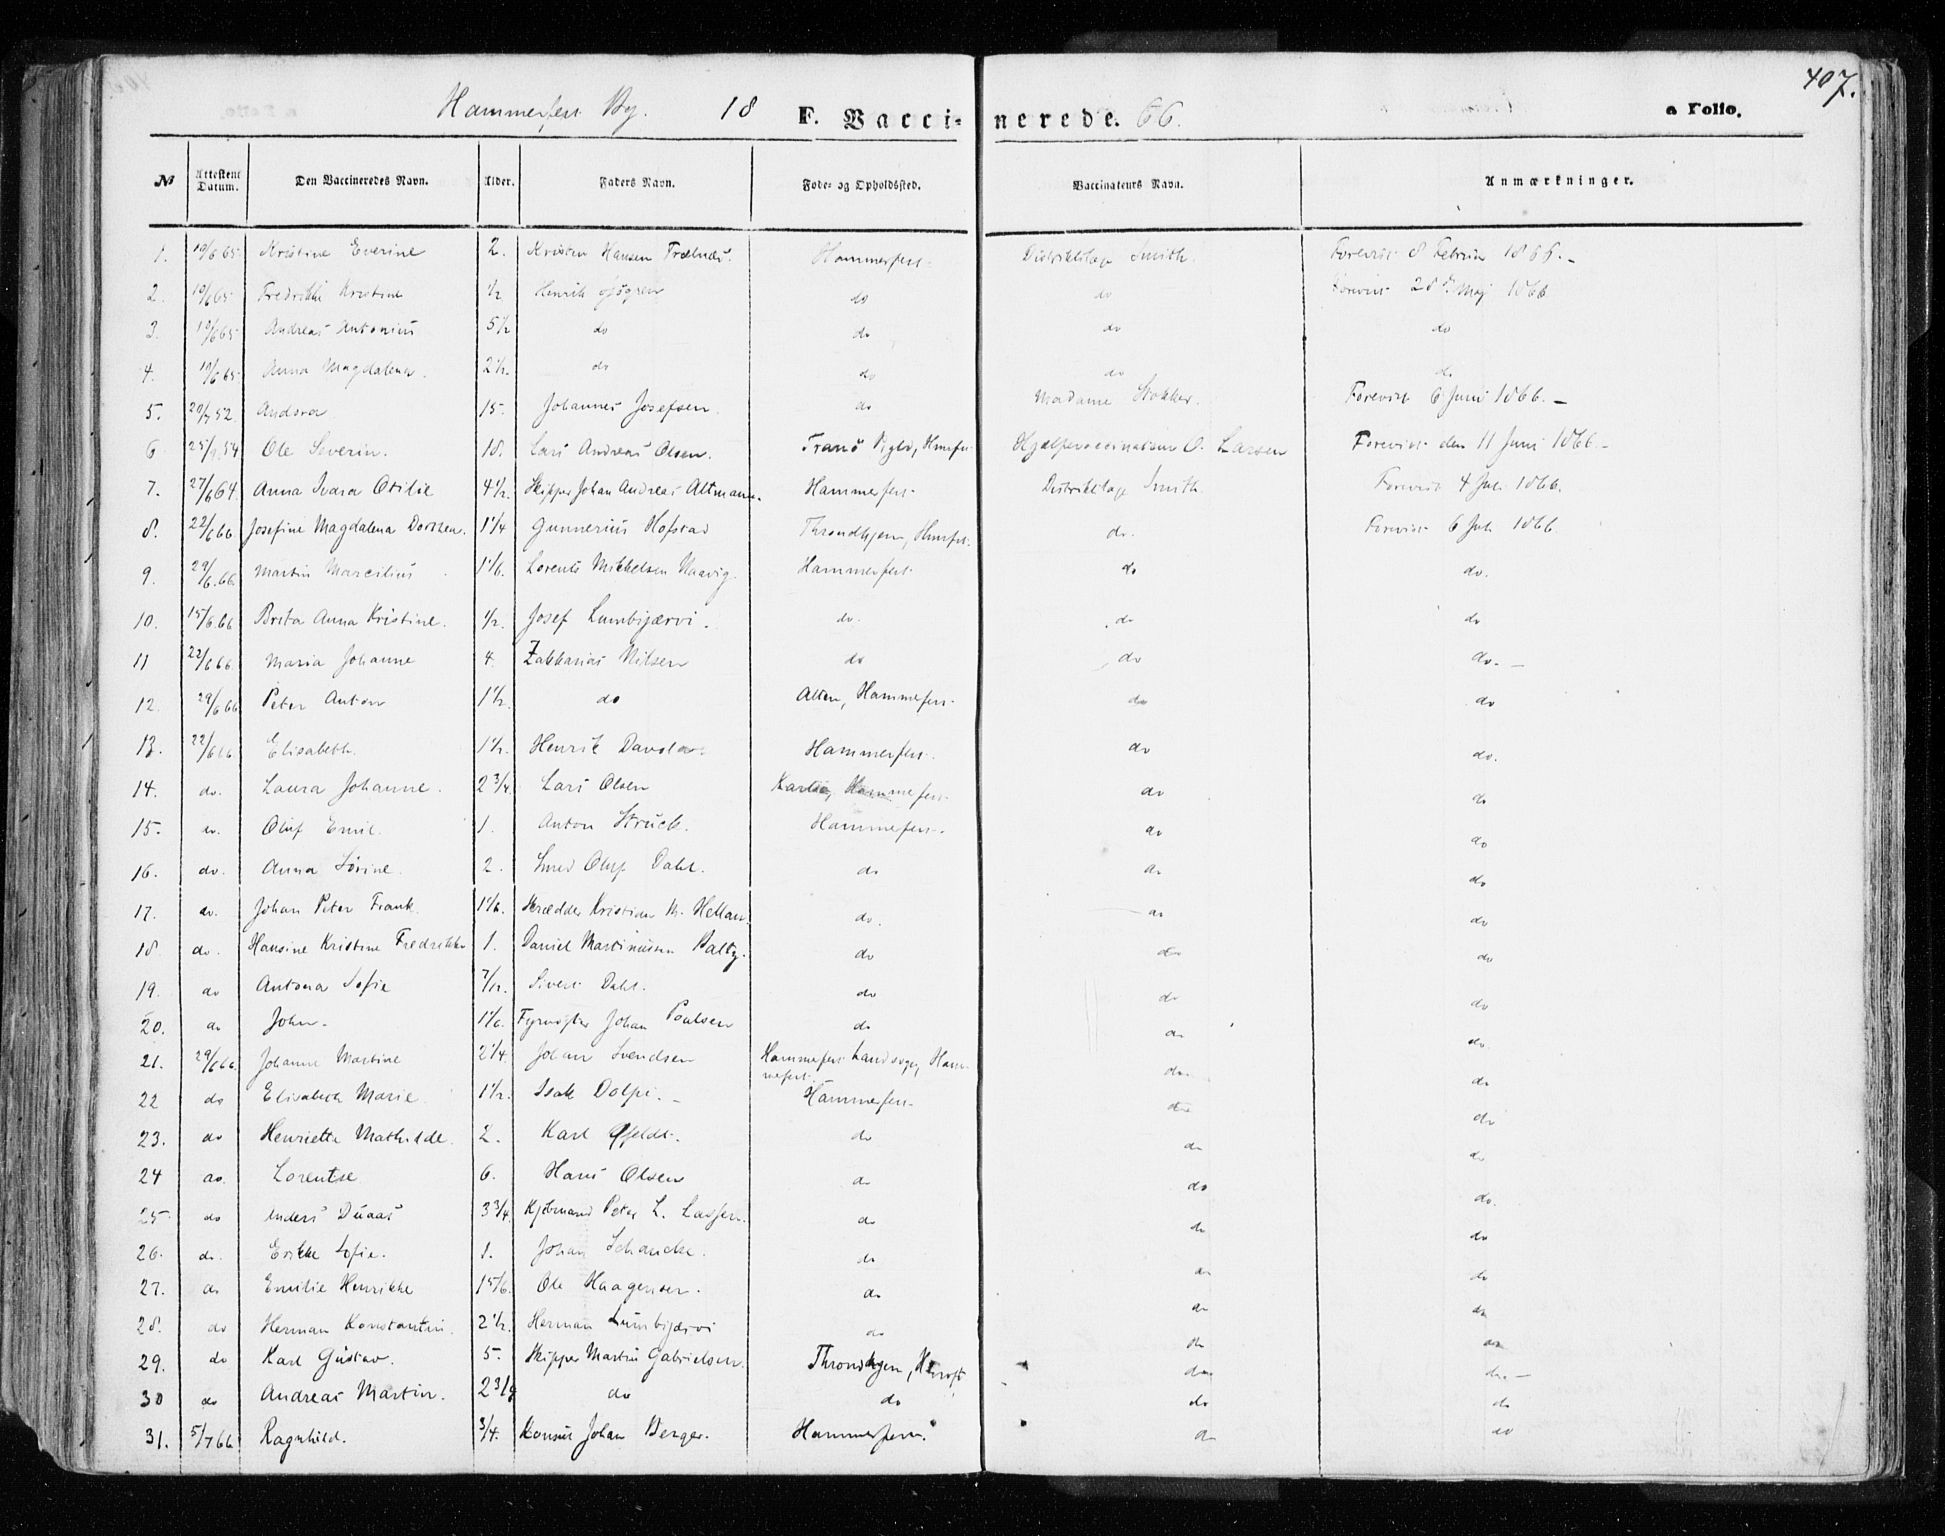 407.
Hammerfest By. 18 F. Vaccinerede. 66. a Folio.
№ Attestens Datum. Den Vaccineredes Navn. Alder. Faders Navn. Føde- og Opholdssted. Vaccinateurs Navn. Anmærkninger.
1. 19/6 65 Kristine Everine 2. Kristen Hansen Trælnæs. Hammerfest. Distriktslæge Smith. Forevist 8 Februar 1866. –
2. 19/6 65 Fredrikke Kristine 1/2 Henrik Sjøgren do do Forevist 28de Maj 1866
3. 19/6 65 Andreas Antonius 5 1/2 do do do do
4. 19/6 65 Anna Magdalena. 2 1/2. do do do do
5. 29/7 52 Andrea 15. Johannes Josefsen. do Madame Stokker. Forevist 6 Juni 1866. –
6 25/9 54 Ole Severin. 18. Lars Andreas Olsen. Tranø Pgld, Hmrfst Hjælpevaccinateur O. Larsen Forevist den 11 Juni 1866 –
7. 27/6 64. Anna Ivara Otilie 4 1/2. Skipper Johan Andreas Altmann. Hammerfest. Distriktslæge Smith. Forevist 4 Juli 1866.
8. 22/6 66 Josefine Magdalena Dorthea. 1 1/4 Gunnerius Hofstad Throndhjem, Hmrfst. do. Forevist 6 Juli 1866.
9. 29/6. 66 Martin Marcilius 1 1/6. Lorents Mikkelsen Maavig. Hammerfest. do do.
10. 15/6 66 Brita Anna Kristine. 1/2. Josef Lumbijærvi. do. do do
11 22/6 66 Maria Johanne 4. Zakkarias Nilsen do do do. –
12. 29/6 66 Peter Anton 1 1/2. do Alten, Hammerfest. do do
13. 22/6 66 Elisabeth. 1 1/2. Henrik Hammerfest. do do.
14. do. Laura Johanne. 2 3/4. Lars Olsen Hammerfest. do do
15. do. Oluf Emil. 1. Anton Struck. Hammerfest. do do
16. do. Anna Sørine. 2. Smed Oluf Dahl. do do do
17. do. Johan Peter Frank. 1 1/6. Skrædder Kristian M. Hellan. do. do do
18. do. Hansine Kristine Fredrikke 1. Daniel Martinusen Balty. do do do
19. do Antona Sofie 7/12. Sivert Dahl. do do do
20. do John. 1 1/6. Fyrvogter Johan Paulsen do do do.
21. 29/6 66. Johanne Martine 2 1/4. Johan Svendsen Hammerfest Landsogn, Ham-
merfest. do. do
22 do Elisabeth Marie 1 1/2. Isak Dolpi. – Hammerfest. do do
23. do Henriette Mathilde. 2. Karl Qfeldt. do do do
24 do. Lorentse 6. Hans Olsen do do do.
25 do Anders Duaas 3 3/4. Kjøbmand Peter L. Lassen. do do do
26. do. Erikke Sofie. 1. Johan Schancke. do do do
27. do Emilie Henrikke 1 5/6. Ole Haagensen. do do do
28. do Herman Konstantin. 2 1/2. Herman Lumbijærvi do do do
29. do Karl Gustav. 5. Skipper Martin Gabrielsen. Throndhjem, Hmrfst do do. –
30 do Andreas Martin. 2 3/4 do do do do
31. 5/7 66 Ragnhild. 3/4. Konsul Johan Berger. Hammerfest. do do